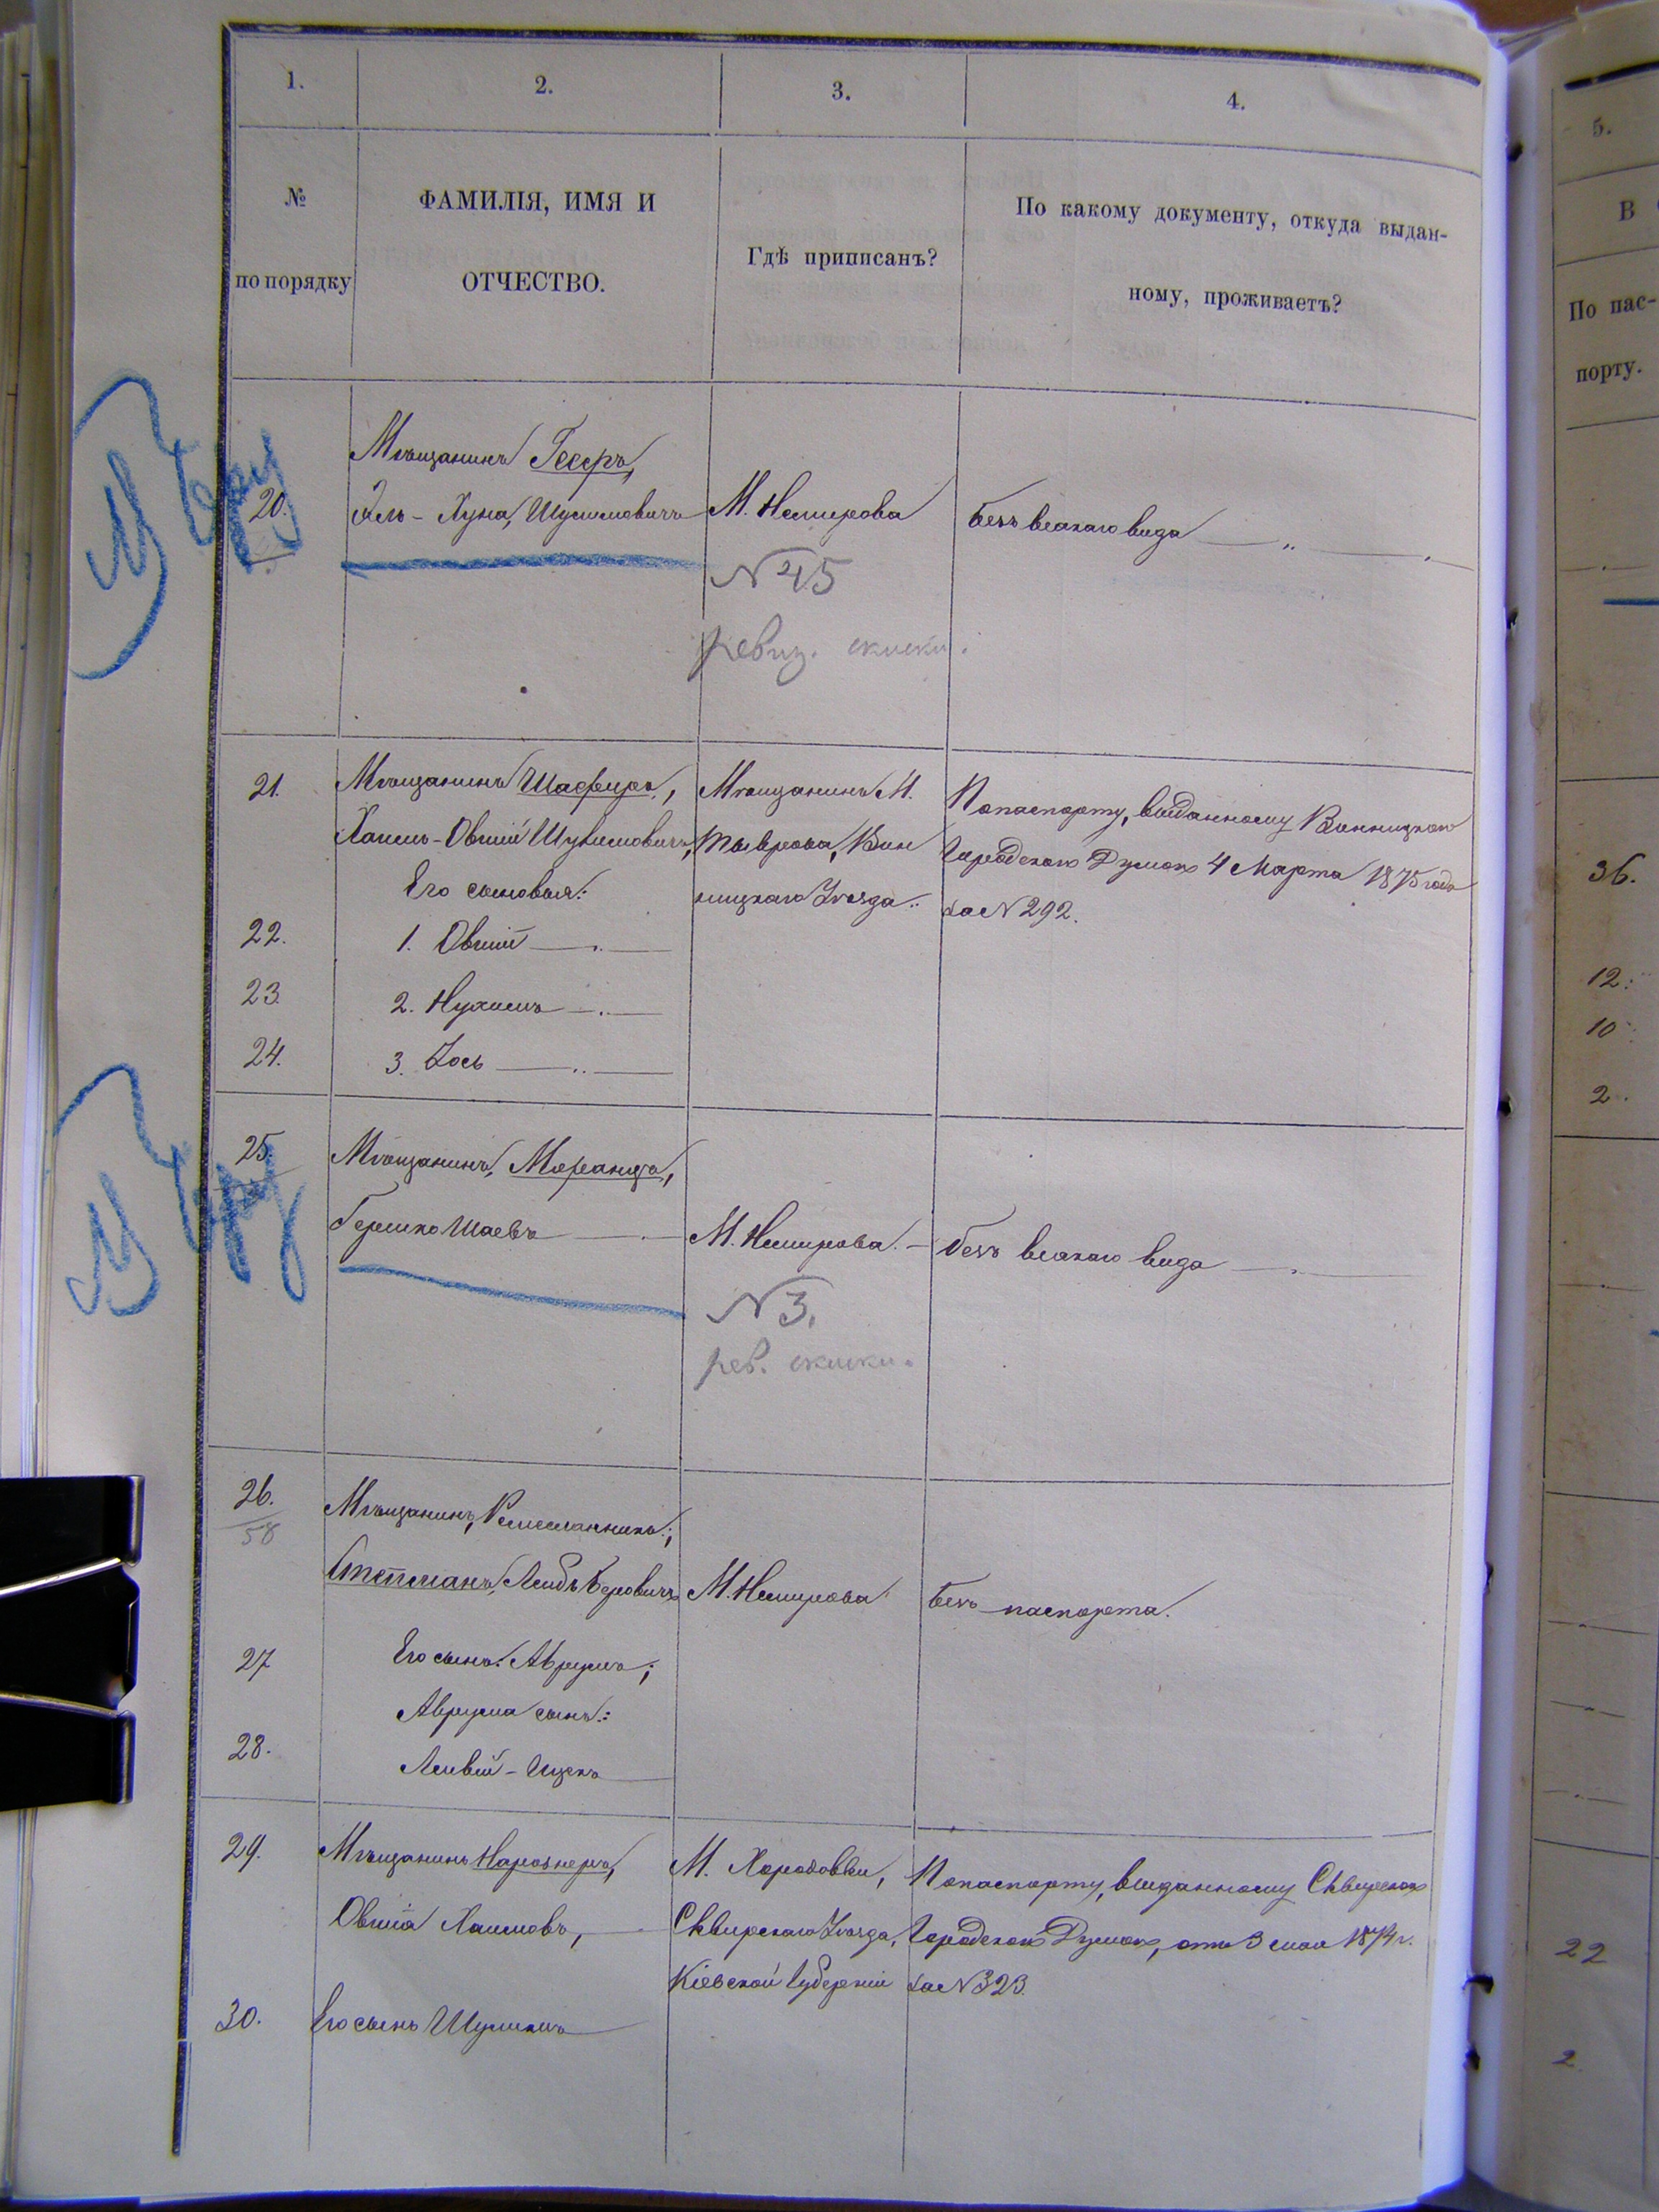 1.
2.
3.
4.
№
по порядку
ФАМИЛІЯ, ИМЯ И
ОТЧЕСТВО.
Гдѣ приписанъ?
По какому документу, откуда выдан-
ному, проживаетъ?
20.
Мѣщанинъ Гесеръ,
Эль-Хуна, Шулимовичъ
М. Немирова
безъ всякаго вида
N 45
ревиз. скиски.
21.
Мѣщанинъ Шафиръ,
Хаимъ-Овшій Шулимовичъ,
Его сыновья:
Мѣщанинъ М.
Тыврова, Вин
ницкаго Уѣзда.
По паспорту, выданному Винницкою
Городскою Думою 4 Марта 1875 года
за N 292.
22.
1. Овшій
23.
2. Нухимъ
24.
3. Іось
25.
Мѣщанинъ,
Гершко Шаевъ
М. Немирова.
безъ всякаго вида
N 3.
рев. скиски.
26.
58
Мѣщанинъ, Ремесленникъ;
Лейбъ Беровичъ
М. Немирова
безъ паспорта.
27
Его сынъ: Аврумъ;
Аврума сынъ:
28.
Лейвій-Ицекъ
29.
Мѣщанинъ
Овшія Хаимовъ,
М. Ходоровки,
Сквирскаго Уѣзда,
Кіевской Губерніи
По паспорту, выданному Сквирскою
Городскою Думою, отъ 3 мая 1874 г.
за N 323.
30.
Его сынъ Шулимъ
5.
В
По пас-
порту.
36.
12.
10
2.
22
2